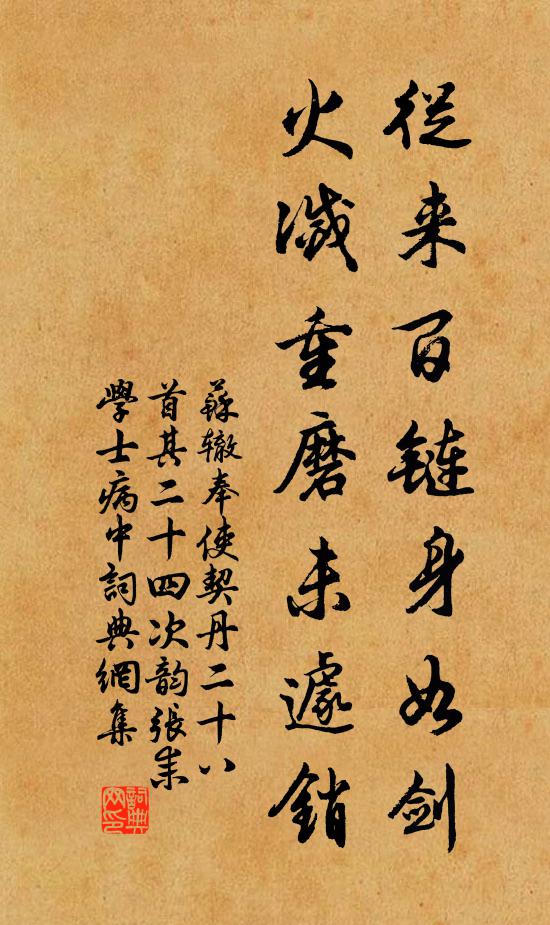 從来百鏈身如劍
火滅重磨未遽銷
蘇辙奉使契丹二十八
首其二十四次韵張耒
學士病中詞典網集
詞典
网印